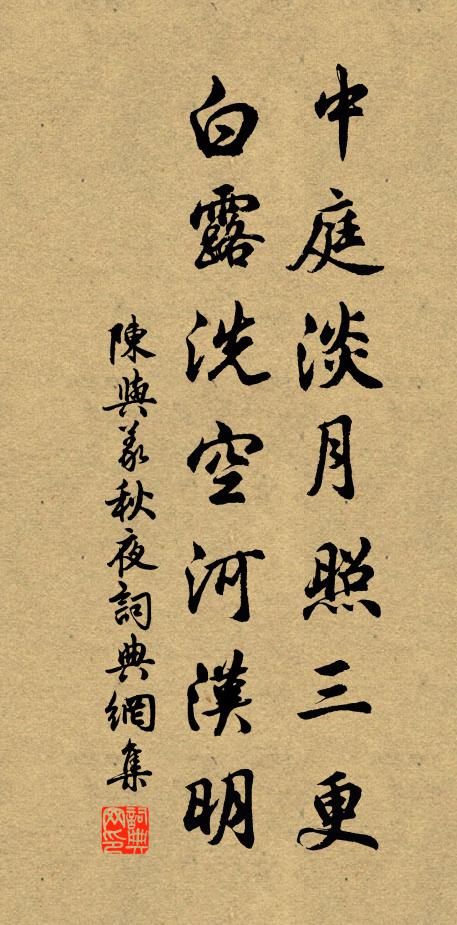 中庭淡月照三更
白露洗空河漢明
陳與義秋夜詞典網集
詞典網印